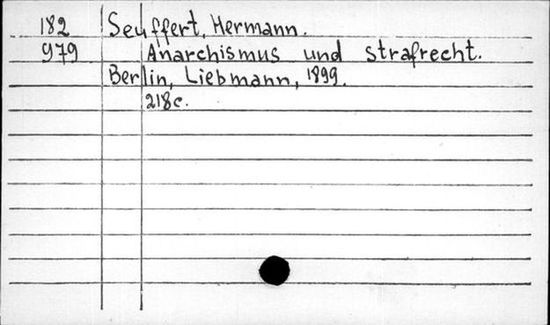 182 Seuffert, Hermann.
979 Anarchismus und strafrecht.
Berlin, Liebmann, 1899.
218c.